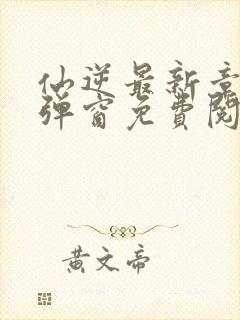 仙逆最新章
弹窗免费阅
黄文帝